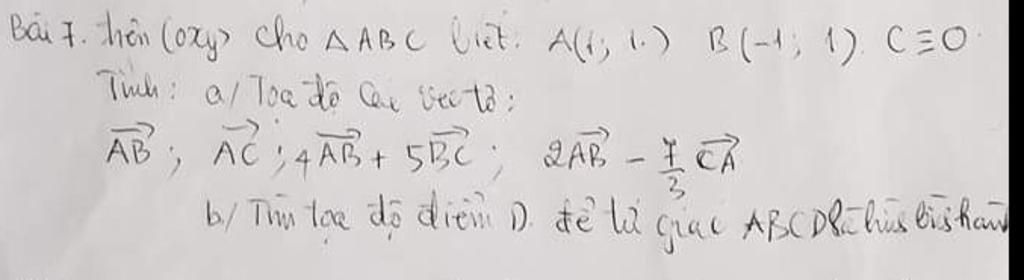 Bài 7. trên (oxy) cho △ABC biết. A(1; 1.) B(-1; 1). C≡O.
Tính: a/ Toạ độ các vectơ:
$\overrightarrow{AB}$; $\overrightarrow{AC}$; 4$\overrightarrow{AB}$ + 5$\overrightarrow{BC}$; 2$\overrightarrow{AB}$ - $\frac{7}{3}$ $\overrightarrow{CA}$
b/ Tìm toạ độ điểm D. để tứ giác ABCD là hình bình hành